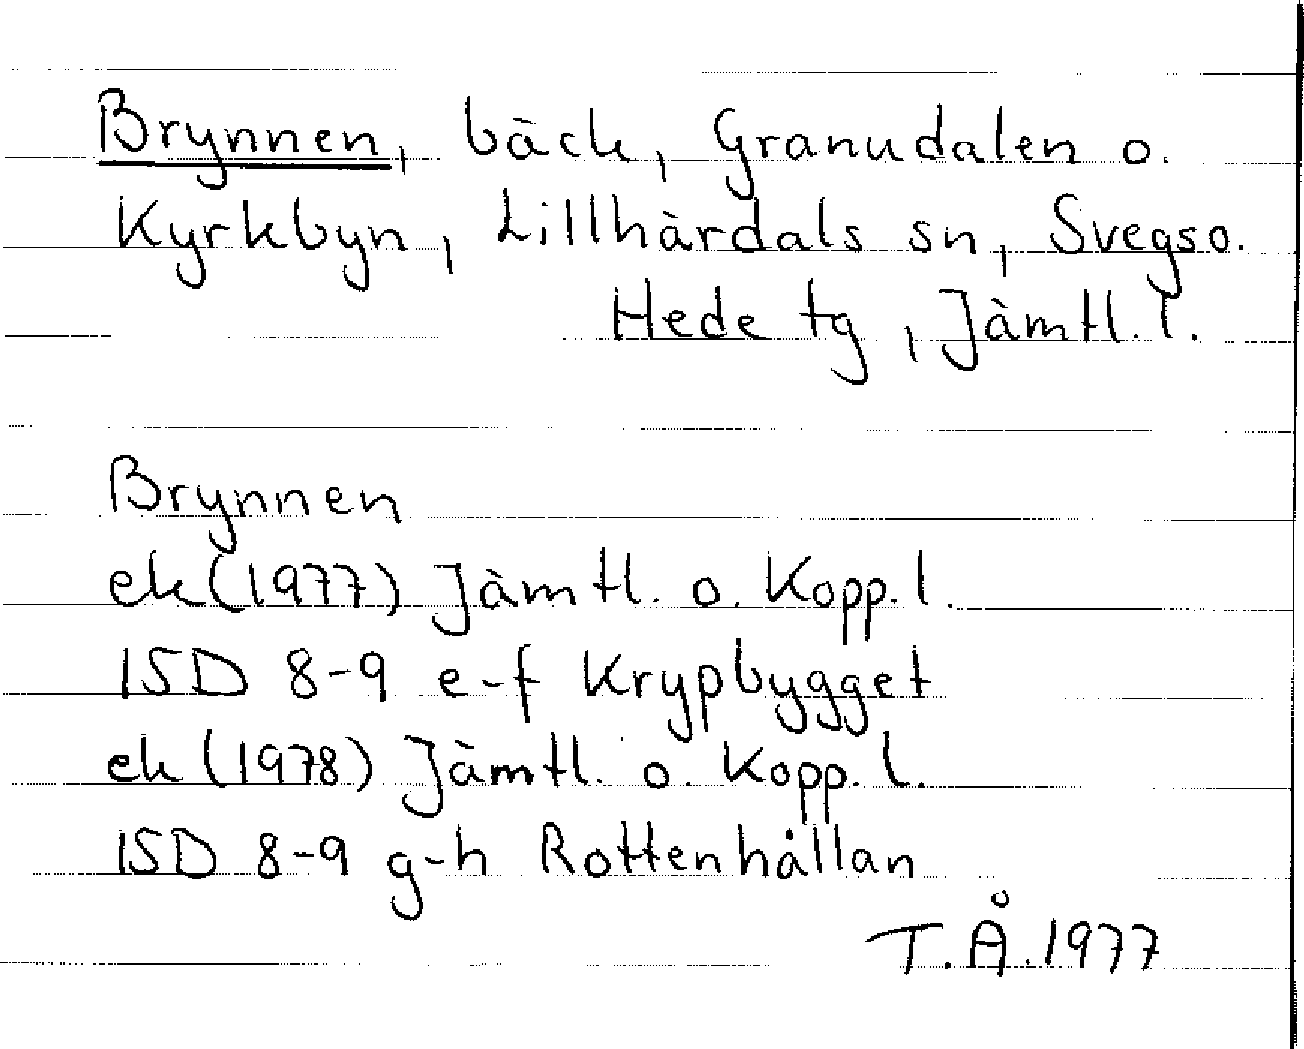 Brynnen, bäck, Granudalen o.
Kyrkbyn, Lillhärdals sn, Svegs o.
Hede tg, Jämtl. l.
Brynnen
ek (1977) Jämtl. o. Kopp. l.
15D 8-9 e-f Krypbygget
ek (1978) Jämtl. o. Kopp. l.
15D 8-9 g-h Rottenhållan
T.Å. 1977